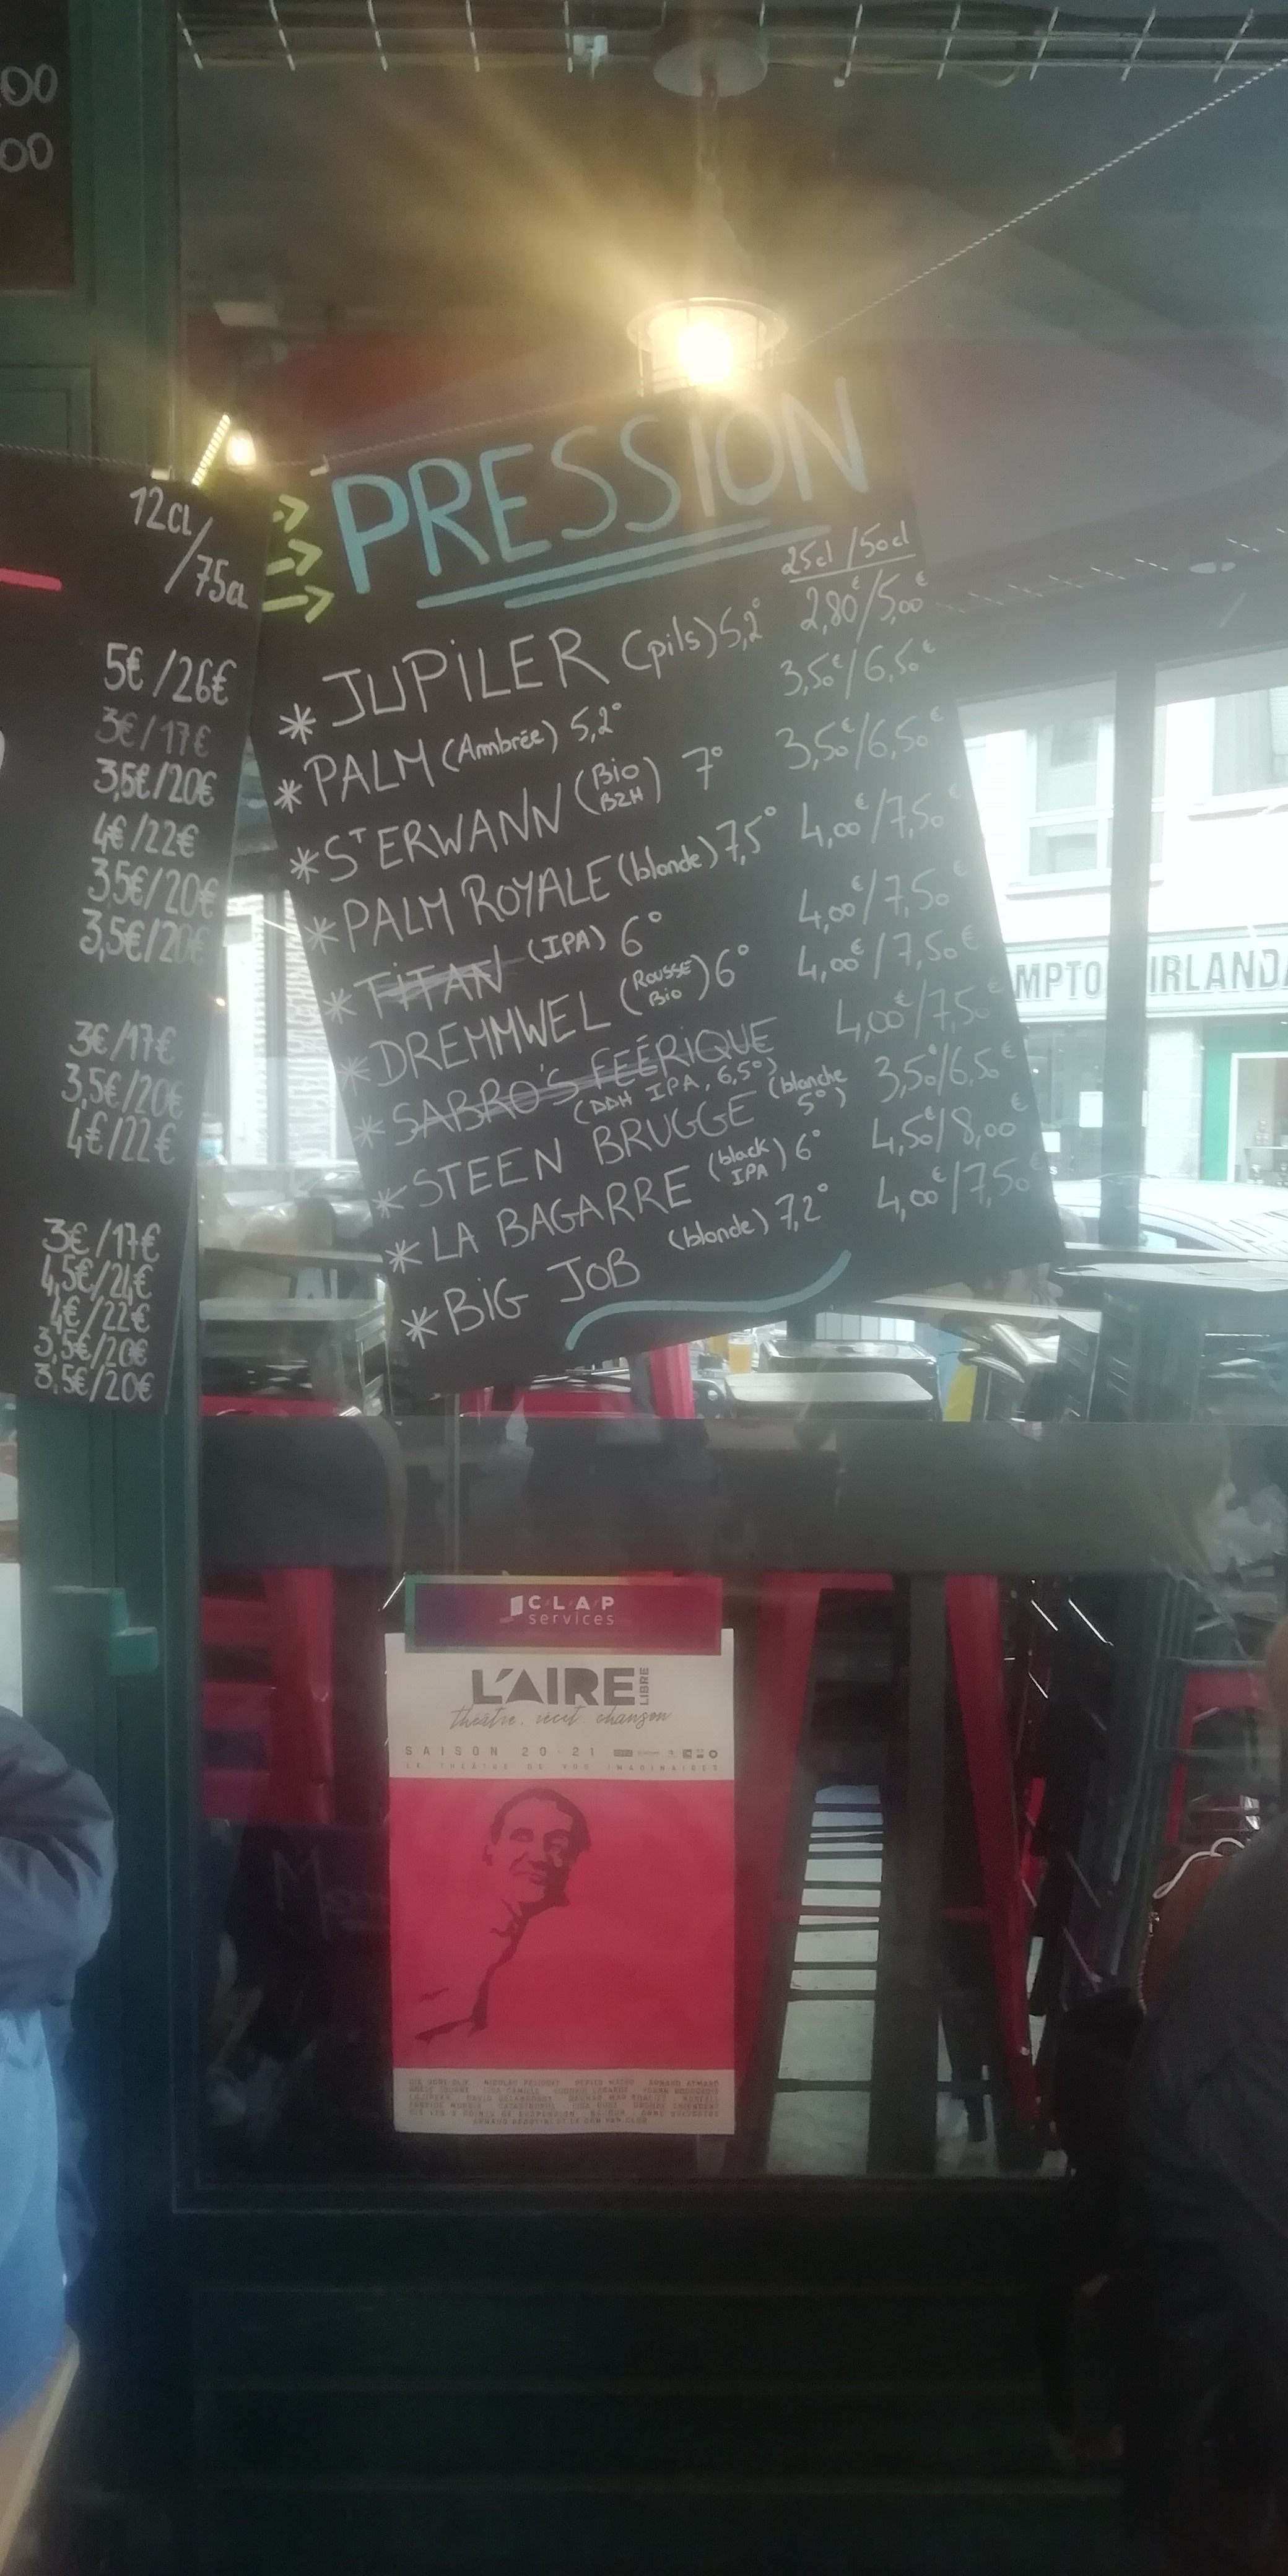 00
00
12cl/
/75cl
5€/26€
3€/17€
3,5€/20€
4€/22€
3,5€/20€
3,5€/20€
3€/17€
3,5€/20€
4€/22€
3€/17€
4,5€/24€
4€/22€
3,5€/20€
3,5€/20€
PRESSION
25cl/50cl
* JUPILER (pils) 5,2° 2,80€/5,00€
* PALM (Ambrée) 5,2° 3,50€/6,50€
* ST ERWANN (Bio BZH) 7° 3,50€/6,50€
* PALM ROYALE (blonde) 7,5° 4,00€/7,50€
* TITAN (IPA) 6° 4,00€/7,50€
* DREMMWEL (Rousse Bio) 6° 4,00€/7,50€
* SABRO'S FEÉRIQUE 4,00€/7,50
(DDH IPA, 6,5°)
* STEEN BRUGGE (blanche 5°) 3,50€/6,50€
* LA BAGARRE (black IPA) 6° 4,50€/8,00€
* BIG JOB (blonde) 7,2° 4,00€/7,50€
MPTO IRLANDA
CLAP
services
L'AIRE LIBRE
théâtre. récit chanson
SAISON 20-21
LE THÉÂTRE DE VOS IMAGINAIRES